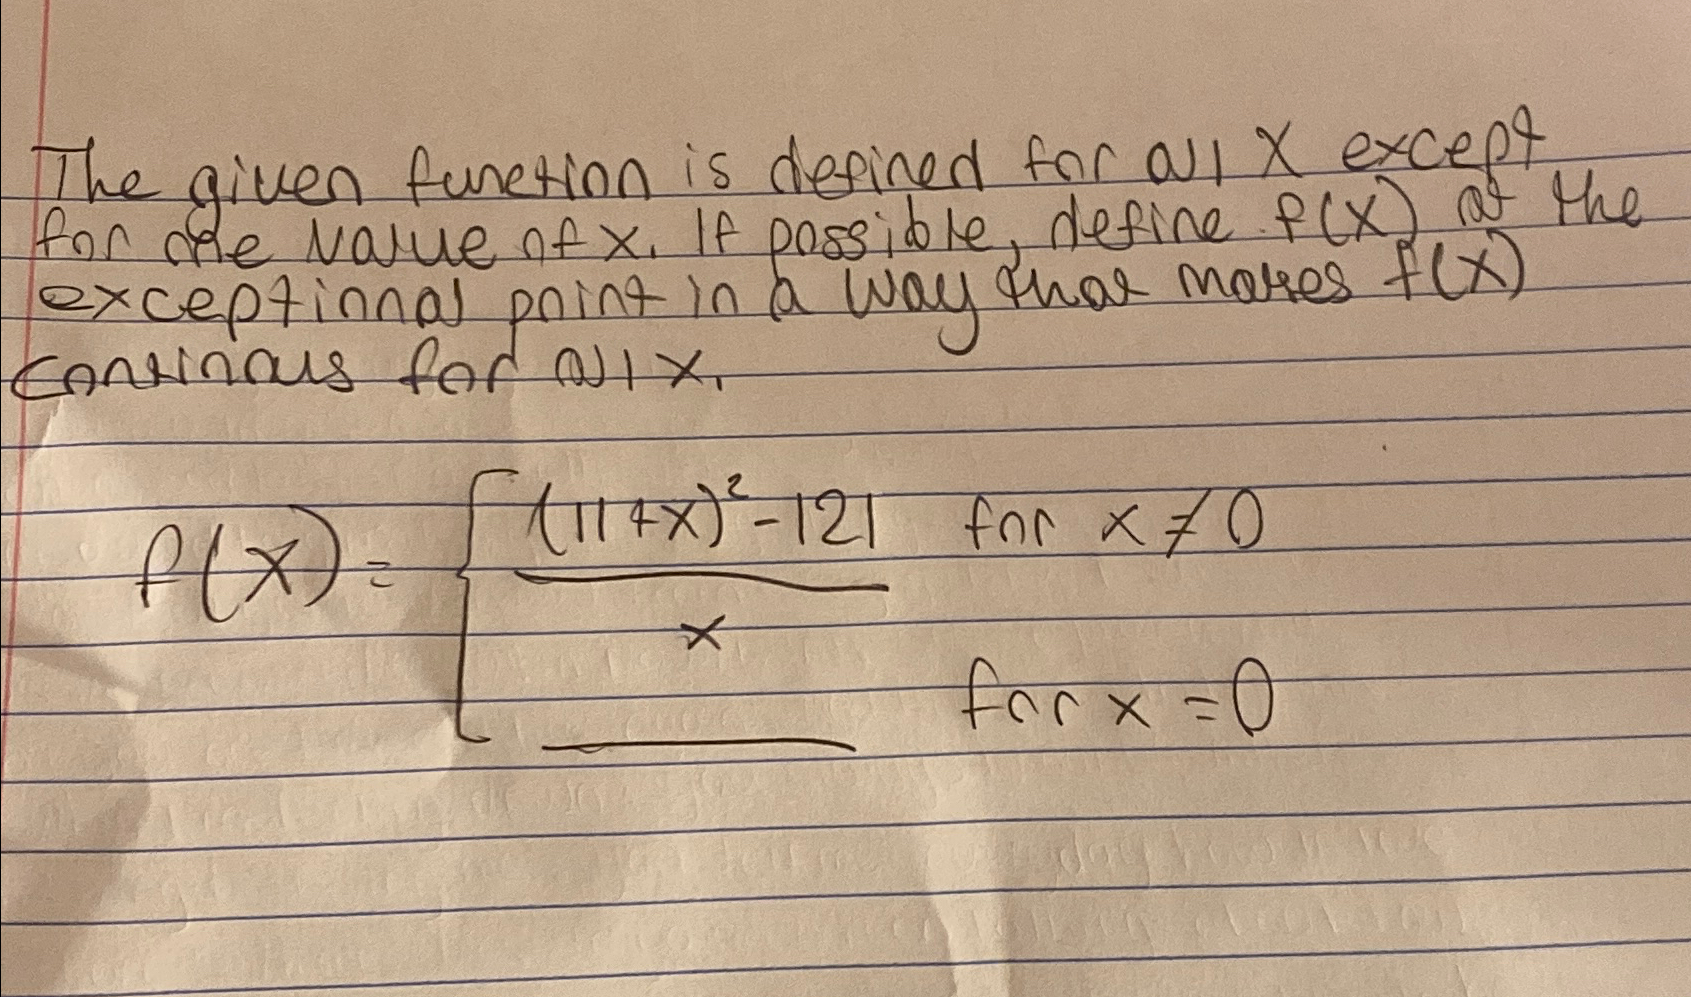 The given function is defined for all X except
for one value of x. If possible, define f(X) at the
exceptional point in a way that makes f(X)
continous for all x.
f(x) = { (11+x)² - 121 for x ≠ 0
x
____ for x = 0